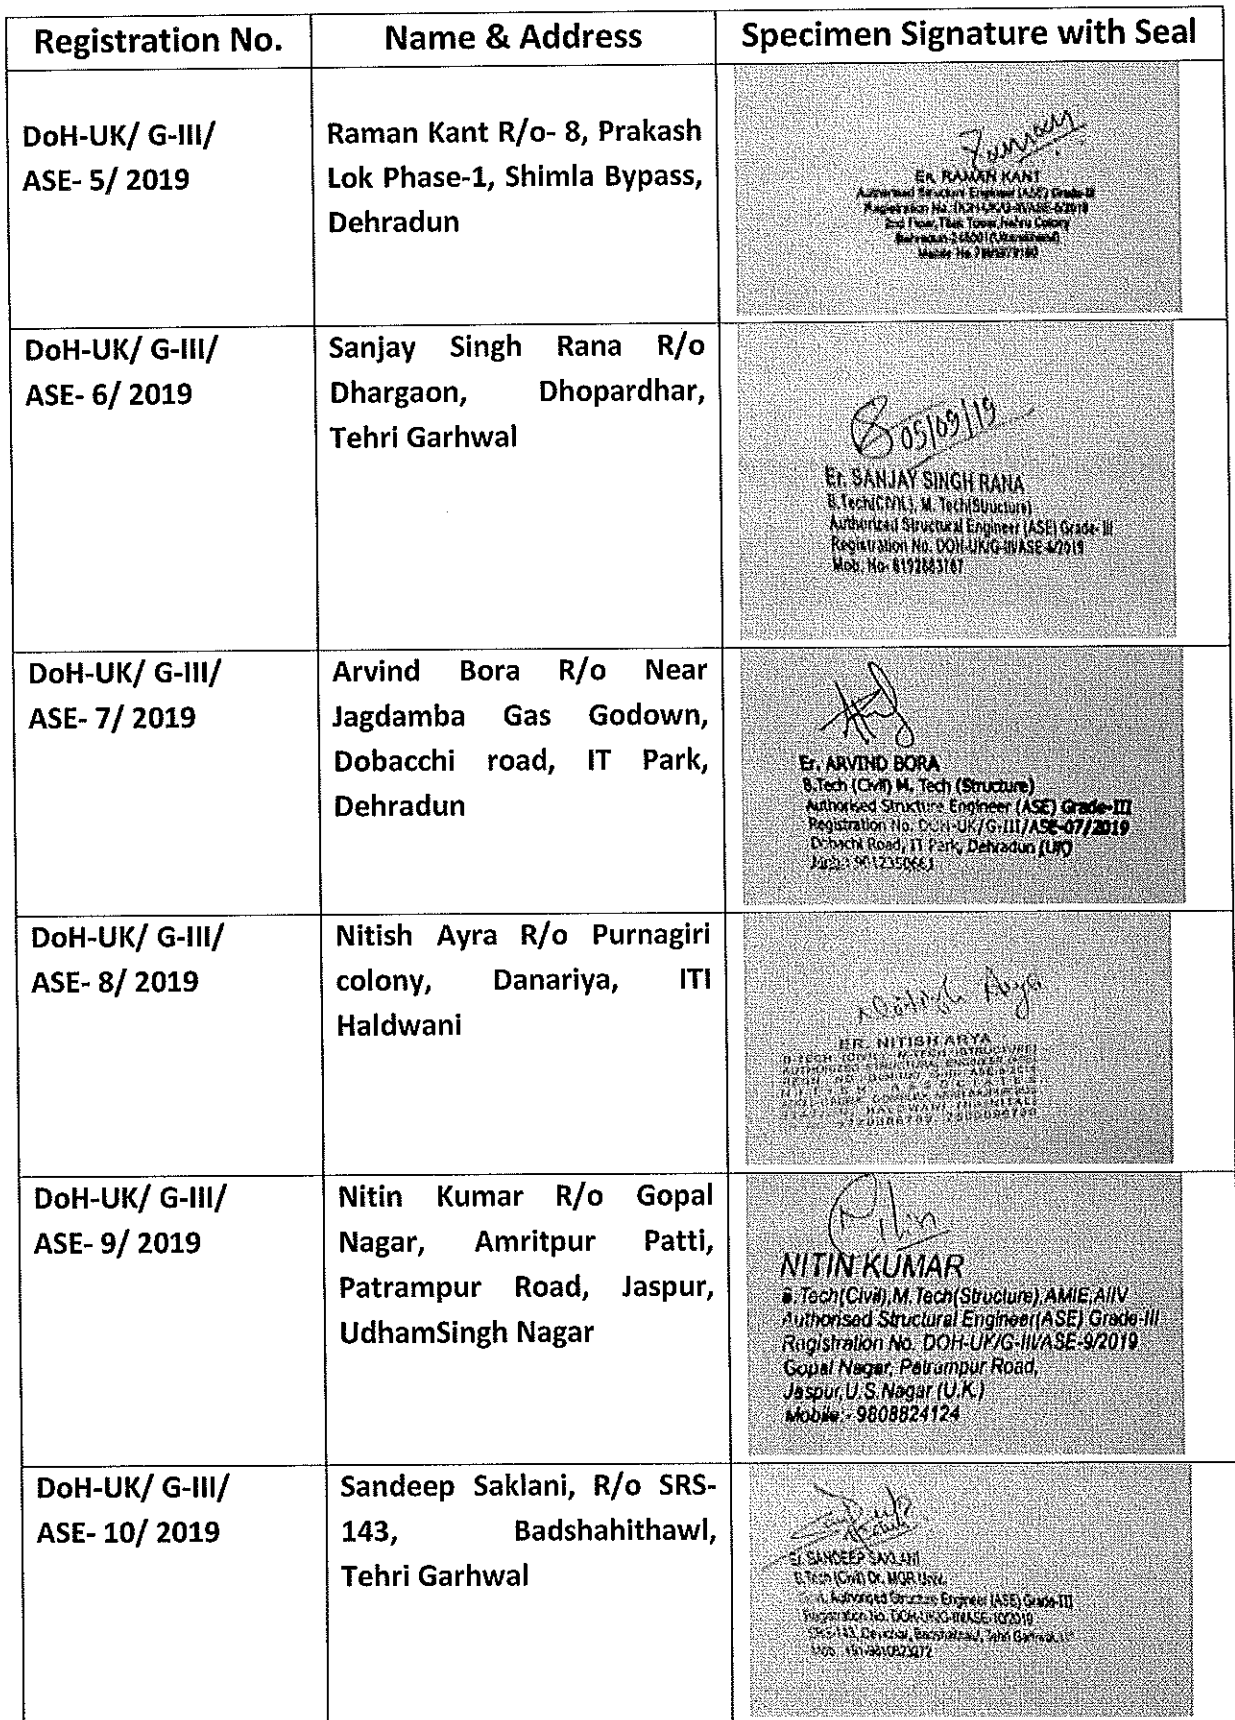 Registration No.
Name & Address
Specimen Signature with Seal
DoH-UK/ G-III/
ASE- 5/ 2019
Raman Kant R/o- 8, Prakash
Lok Phase-1, Shimla Bypass,
Dehradun
ER. RAMAN KANT
Authorised Structure Engineer (ASE) Grade-III
2nd Floor, Tilak Tower, Nehru Colony
DoH-UK/ G-III/
ASE- 6/ 2019
Sanjay Singh Rana R/o
Dhargaon, Dhopardhar,
Tehri Garhwal
05/09/19
Er. SANJAY SINGH RANA
B.Tech(CIVIL), M. Tech(Structure)
Authorized Structural Engineer (ASE) Grade- III
Registration No.
Mob. No-
DoH-UK/ G-III/
ASE- 7/ 2019
Arvind Bora R/o Near
Jagdamba Gas Godown,
Dobacchi road, IT Park,
Dehradun
Er. ARVIND BORA
B.Tech (Civil) M. Tech (Structure)
Authorised Structure Engineer (ASE) Grade-III
Registration No. DOH-UK/G-III/ASE-07/2019
Dobachi Road, IT Park, Dehradun (UK)
DoH-UK/ G-III/
ASE- 8/ 2019
Nitish Ayra R/o Purnagiri
colony, Danariya, ITI
Haldwani
Nitish Arya
ER. NITISH ARYA
DoH-UK/ G-III/
ASE- 9/ 2019
Nitin Kumar R/o Gopal
Nagar, Amritpur Patti,
Patrampur Road, Jaspur,
UdhamSingh Nagar
Nitin
NITIN KUMAR
B.Tech(Civil),M.Tech(Structure),AMIE,AIIV
Authorised Structural Engineer(ASE) Grade-III
Registration No. DOH-UK/G-III/ASE-9/2019
Gopal Nagar, Patrampur Road,
Jaspur,U.S.Nagar (U.K.)
Mobile:- 9808824124
DoH-UK/ G-III/
ASE- 10/ 2019
Sandeep Saklani, R/o SRS-
143, Badshahithawl,
Tehri Garhwal
Er. SANDEEP SAKLANI
B.Tech (Civil) Dr. MGR Univ.
Authorised Structure Engineer (ASE) Grade-III